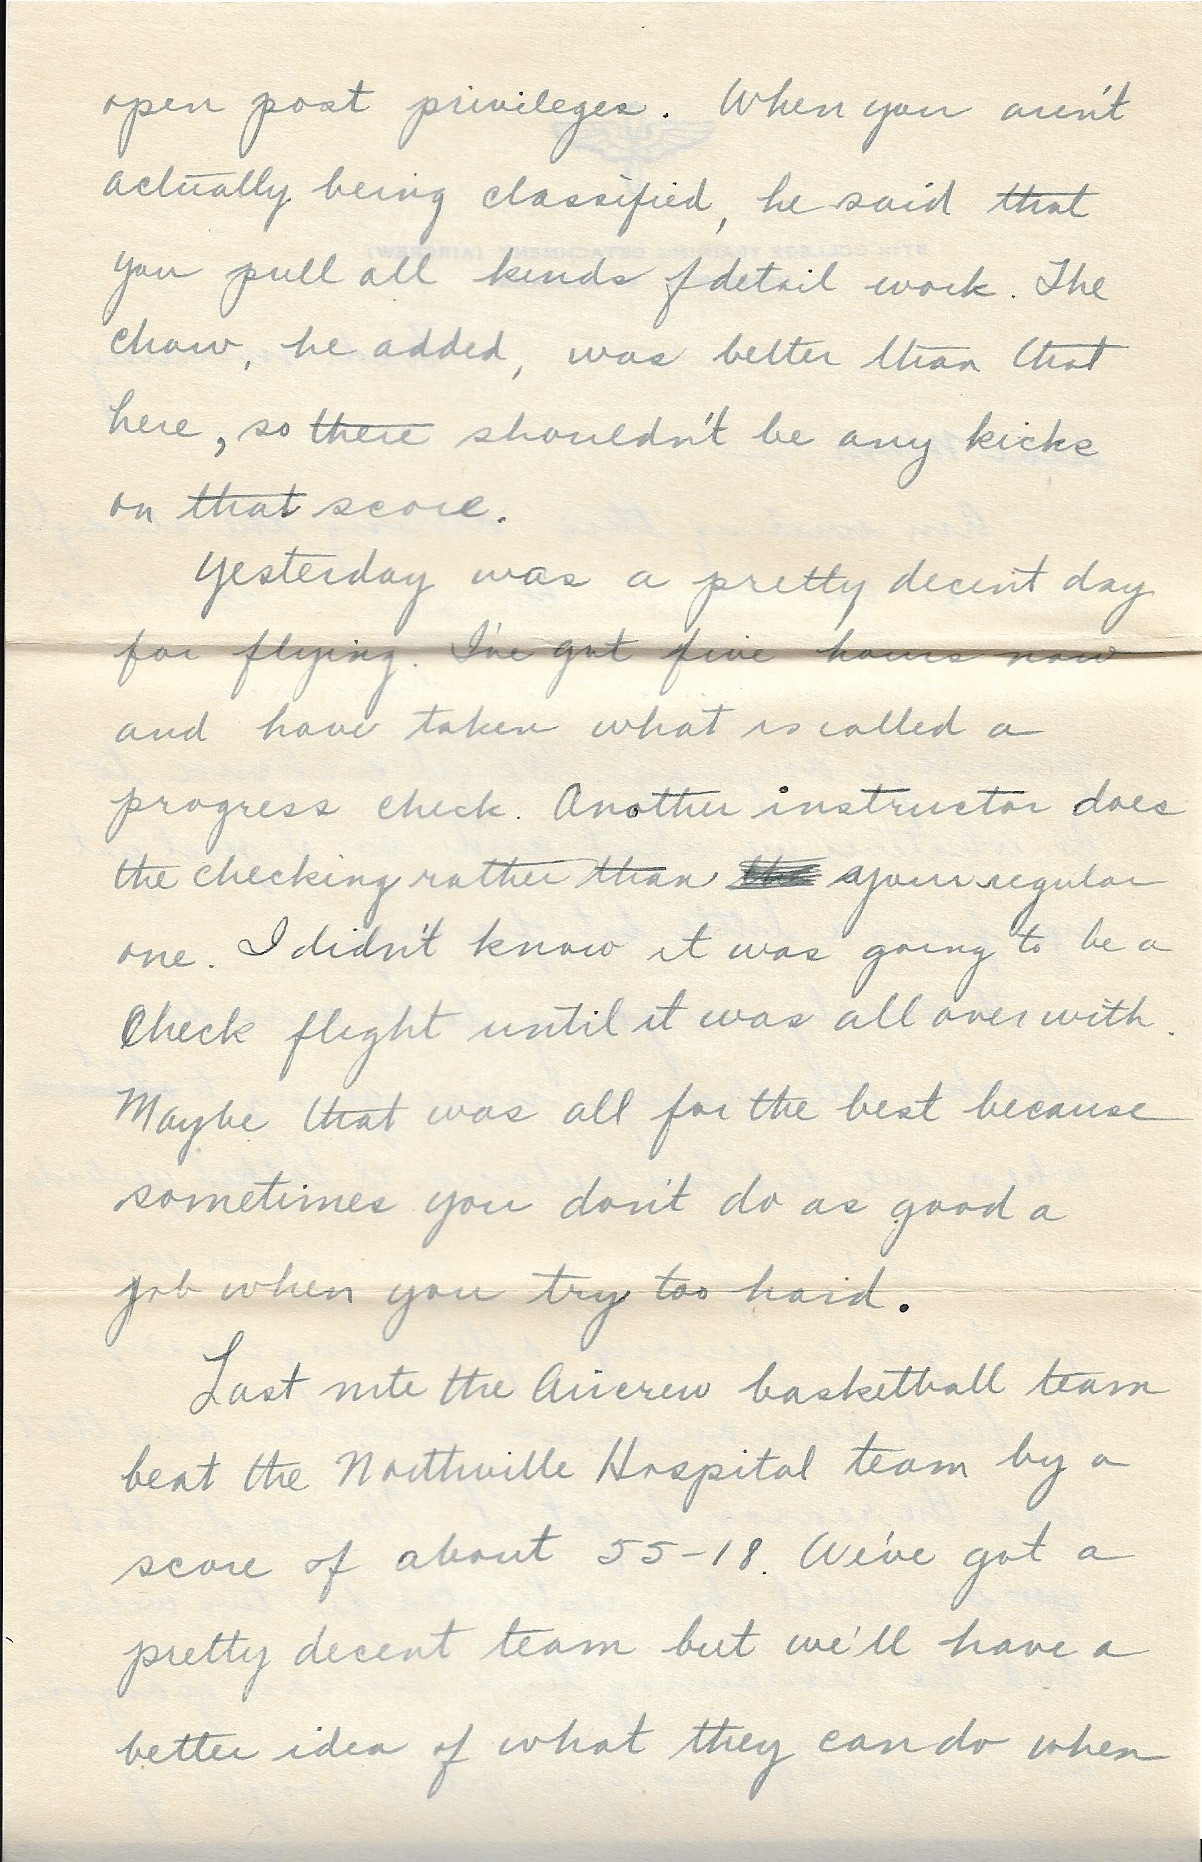 open post privileges. When you aren't
actually being classified, he said that
you pull all kinds of detail work. The
chow, he added, was better than that
here, so there shouldn't be any kicks
on that score.
Yesterday was a pretty decent day
for flying. I've got five hours now
and have taken what is called a
progress check. Another instructor does
the checking rather than the your regular
one. I didn't know it was going to be a
Check flight until it was all over with.
Maybe that was all for the best because
sometimes you don't do as good a
job when you try too hard.
Last nite the Aircrew basketball team
beat the Northville Hospital team by a
score of about 55-18. We've got a
pretty decent team but we'll have a
better idea of what they can do when